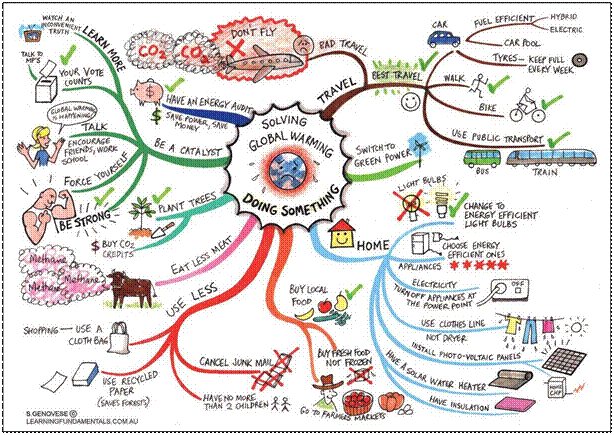 SOLVING
GLOBAL WARMING
DOING SOMETHING
WATCH AN
INCONVENIENT
TRUTH
LEARN MORE
TALK TO
MP'S
YOUR VOTE
COUNTS
GLOBAL WARMING
IS HAPPENING
TALK
ENCOURAGE
FRIENDS, WORK
SCHOOL
FORCE YOURSELF
BE STRONG
BE A CATALYST
HAVE AN ENERGY AUDIT
$ SAVE POWER, SAVE
MONEY
PLANT TREES
$ BUY CO2
CREDITS
EAT LESS MEAT
Methane
Methane
Methane
USE LESS
SHOPPING — USE A
CLOTH BAG
USE RECYCLED
PAPER
(SAVES FORESTS)
CANCEL JUNK MAIL
HAVE NO MORE
THAN 2 CHILDREN
BUY LOCAL
FOOD
BUY FRESH FOOD
NOT FROZEN
GO TO FARMERS MARKETS
DON'T FLY
CO2
CO2
BAD TRAVEL
TRAVEL
BEST TRAVEL
CAR
FUEL EFFICIENT
HYBRID
ELECTRIC
CAR POOL
TYRES — KEEP FULL
EVERY WEEK
WALK
BIKE
USE PUBLIC TRANSPORT
BUS
TRAIN
SWITCH TO
GREEN POWER
HOME
LIGHT BULBS
CHANGE TO
ENERGY EFFICIENT
LIGHT BULBS
APPLIANCES
CHOOSE ENERGY
EFFICIENT ONES
ELECTRICITY
TURN OFF APPLIANCES AT
THE POWER POINT
OFF
USE CLOTHES LINE
NOT DRYER
INSTALL PHOTO-VOLTAIC PANELS
HAVE A SOLAR WATER HEATER
HAVE INSULATION
S.GENOVESE ©
LEARNINGFUNDAMENTALS.COM.AU